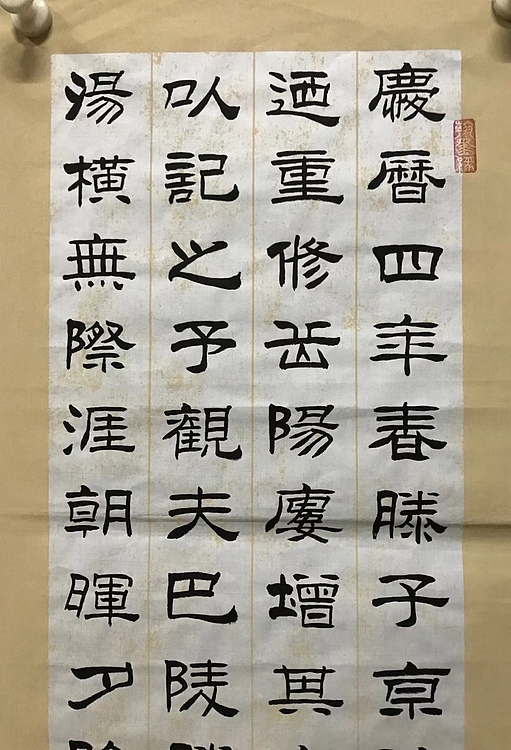 慶曆四年春滕子京
迺重修岳陽廔增其
以記之予觀夫巴陵
湯橫無際涯朝暉夕